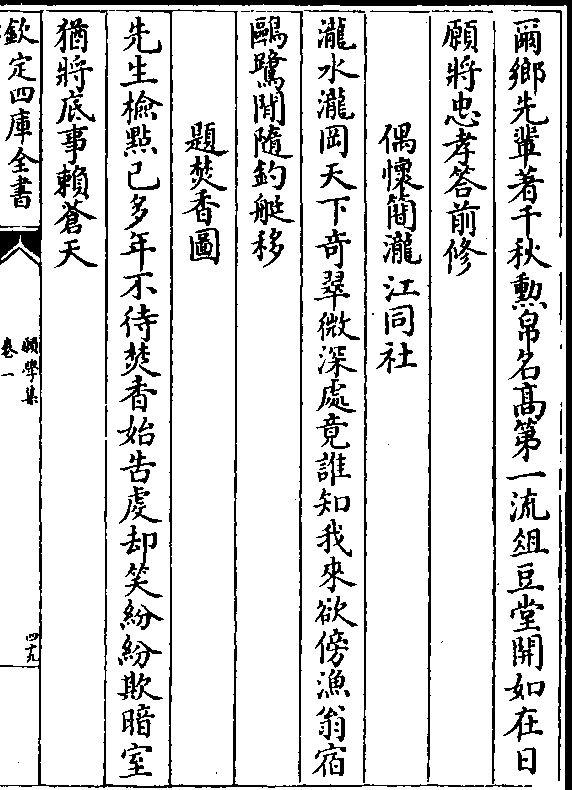 爾鄉先輩著千秋勲帛名髙第一流俎豆堂開如在日
願將忠孝答前修
偶懷簡瀧江同社
瀧水瀧岡天下奇翠微深處竟誰知我來欲傍漁翁宿
鷗鷺閒隨釣艇移
題焚香圖
先生檢點已多年不待焚香始告䖍却笑紛紛欺暗室
猶將底事賴蒼天
欽定四庫全書
願學集
卷一